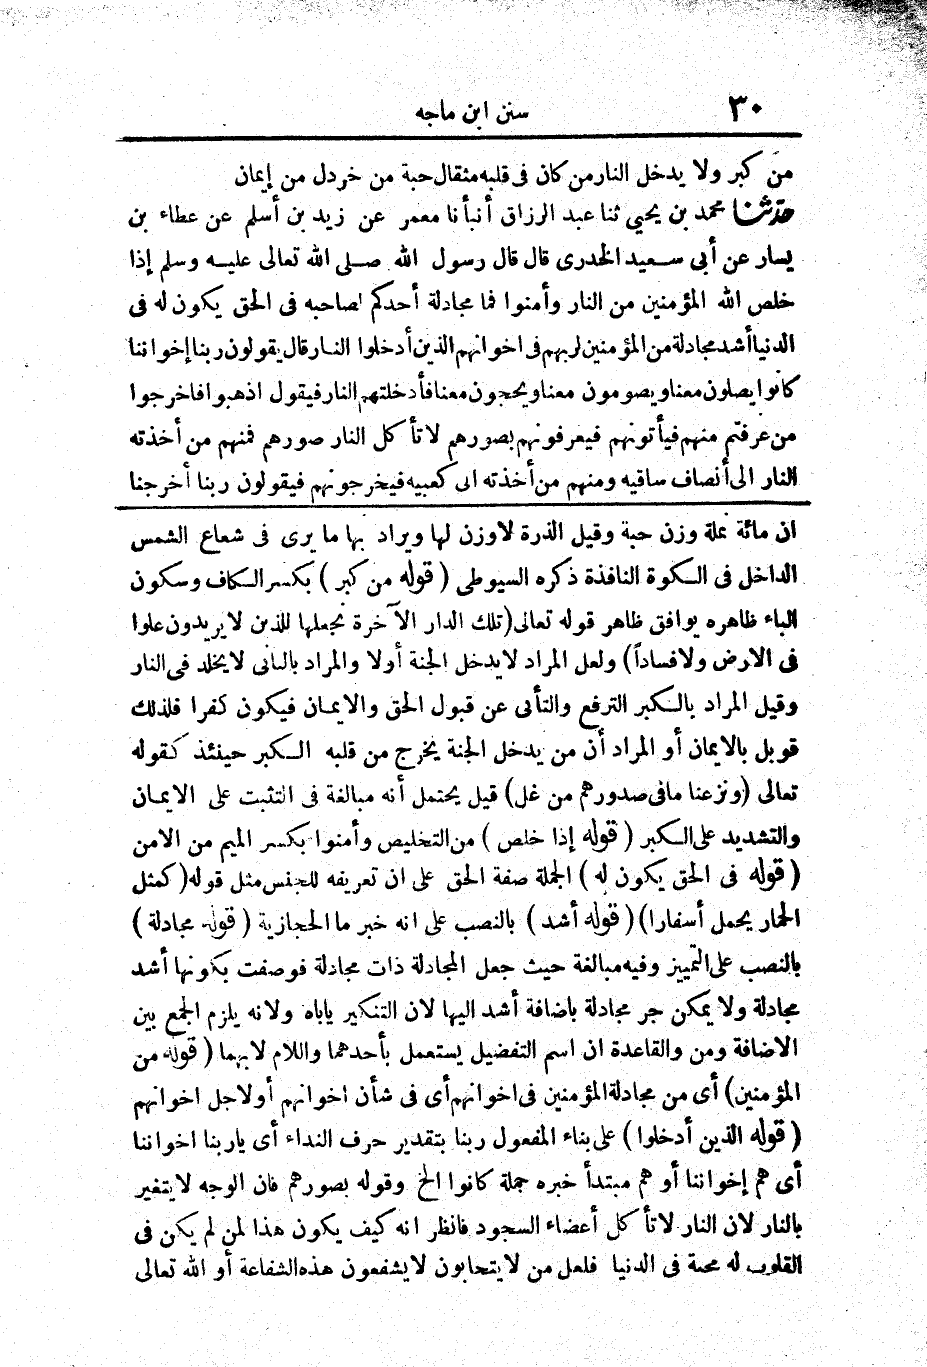 ٣٠
سنن ابن ماجه
من كبر ولا يدخل النار من كان فى قلبه مثقال حبة من خردل من إيمان
حدثنا محمد بن يحيى ثنا عبد الرزاق أنبأنا معمر عن زيد بن أسلم عن عطاء بن
يسار عن أبى سعيد الخدرى قال قال رسول الله صلى الله تعالى عليه وسلم إذا
خلص الله المؤمنين من النار وأمنوا فما مجادلة أحدكم لصاحبه فى الحق يكون له فى
الدنيا أشد مجادلة من المؤمنين لربهم فى اخوانهم الذين أدخلوا النار قال يقولون ربنا إخواننا
كانوا يصلون معنا ويصومون معنا ويحجون معنا فأدخلتهم النار فيقول اذهبوا فاخرجوا
من عرفتم منهم فيأتونهم فيعرفونهم بصورهم لا تأكل النار صورهم فمنهم من أخذته
النار الى أنصاف ساقيه ومنهم من أخذته الى كعبيه فيخرجونهم فيقولون ربنا أخرجنا
ان مائة نملة وزن حبة وقيل الذرة لا وزن لها ويراد بها ما يرى فى شعاع الشمس
الداخل فى الكوة النافذة ذكره السيوطى ( قوله من كبر ) بكسر الكاف وسكون
الباء ظاهره يوافق ظاهر قوله تعالى (تلك الدار الآخرة نجعلها للذين لا يريدون علوا
فى الارض ولا فساداً) ولعل المراد لا يدخل الجنة أولا والمراد بالثانى لا يخلد فى النار
وقيل المراد بالكبر الترفع والتأبى عن قبول الحق والايمان فيكون كفرا فلذلك
قوبل بالايمان أو المراد أن من يدخل الجنة يخرج من قلبه الكبر حينئذ كقوله
تعالى (ونزعنا ما فى صدورهم من غل) قيل يحتمل أنه مبالغة فى التثبت على الايمان
والتشديد على الكبر ( قوله إذا خلص ) من التخليص وأمنوا بكسر الميم من الامن
( قوله فى الحق يكون له ) الجملة صفة الحق على ان تعريفه للجنس مثل قوله (كمثل
الحمار يحمل أسفارا) ( قوله أشد ) بالنصب على انه خبر ما الحجازية ( قوله مجادلة )
بالنصب على التمييز وفيه مبالغة حيث جعل المجادلة ذات مجادلة فوصفت بكونها أشد
مجادلة ولا يمكن جر مجادلة باضافة أشد اليها لان التنكير ياباه ولانه يلزم الجمع بين
الاضافة ومن والقاعدة ان اسم التفضيل يستعمل بأحدهما واللام لا بهما ( قوله من
المؤمنين) أى من مجادلة المؤمنين فى اخوانهم أى فى شأن اخوانهم أو لاجل اخوانهم
( قوله الذين أدخلوا ) على بناء المفعول ربنا بتقدير حرف النداء أى ياربنا اخواننا
أى هم إخواننا أو هم مبتدأ خبره جملة كانوا الخ وقوله بصورهم فان الوجه لا يتغير
بالنار لان النار لا تأكل أعضاء السجود فانظر انه كيف يكون هذا لمن لم يكن فى
القلوب له محبة فى الدنيا فلعل من لا يتحابون لا يشفعون هذه الشفاعة أو الله تعالى